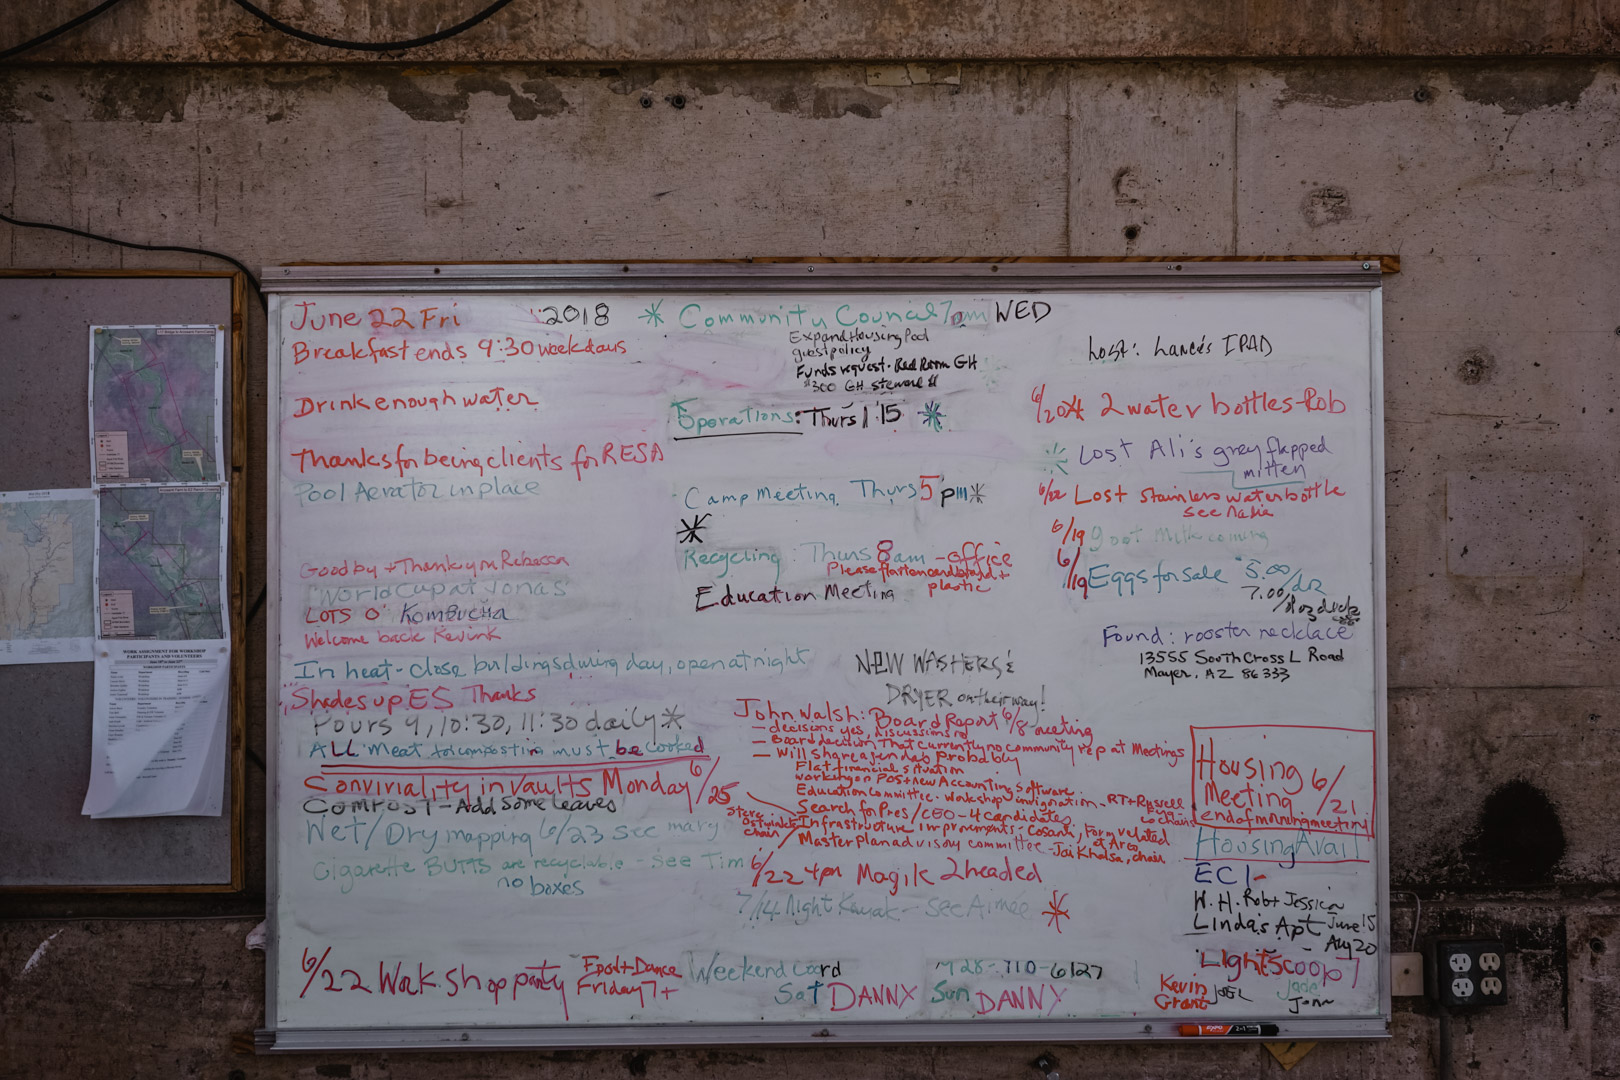 June 22 Fri 2018
Breakfast ends 9:30 weekdays
Drink enough water
Thanks for being clients for RESA
Pool Aerator in place
Goodby + Thank you Rebecca
World Cup at Jonas
LOTS O' KOMBUCHA
Welcome back Kevink
In heat - close buildings during day, open at night
Shades up ES Thanks
Pours 9, 10:30, 11:30 daily
ALL Meat for composting must be cooked
Conviviality in vaults Monday 6/25
Compost - Add some leaves
Wet/Dry mapping 6/23 see mary
Cigarette BUTTS are recyclable - see Tim
no boxes
6/22 Work shop party
Friday 7+
Community Council 7 WED
Expand Housing Pool
guest policy
Funds request - Red Room GH
$300 GH steward
Operations: Thurs 1:15
Camp Meeting Thurs 5 pm
Recycling: Thurs 8am - office
Please flatten cardboard +
plastic
Education Meeting
NEW WASHERS &
DRYER on their way!
John Walsh: Board Report 6/8 meeting
- decisions yes, discussions no
- Board decision that currently no community rep at Meetings
- Will share agendas probably
Flat financial situation
working on POS + new Accounting software
Education committee - workshop integration - RT + Russell
co chairs
Search for Pres/CEO - 4 candidates
Infrastructure Improvements - Cosanti, Form related
at Arco
Steve
chair
Master plan advisory committee - Jai Khalsa, chair
6/22 4pm Magik 2 headed
7/14 Night Kayak - see Aimee
Weekend Coord 928-710-6127
Sat DANNY Sun DANNY
Lost: Lance's IPAD
6/20 2 water bottles - Rob
Lost Ali's grey flapped
mitten
6/22 Lost stainless water bottle
see Nadia
6/19 goat milk coming
6/19 Eggs for sale 5.00/doz
7.00/
Found: rooster necklace
13555 South Cross L Road
Mayer, AZ 86333
Housing 6/21
Meeting
end of morning meeting
Housing Avail
EC 1 -
W.H. Rob + Jessica
Linda's Apt June 15
- Aug 20
Light Scoop 7
Kevin Jade
Grant JOEL John
WORK ASSIGNMENT FOR WORKSHOP
PARTICIPANTS AND VOLUNTEERS
EXPO